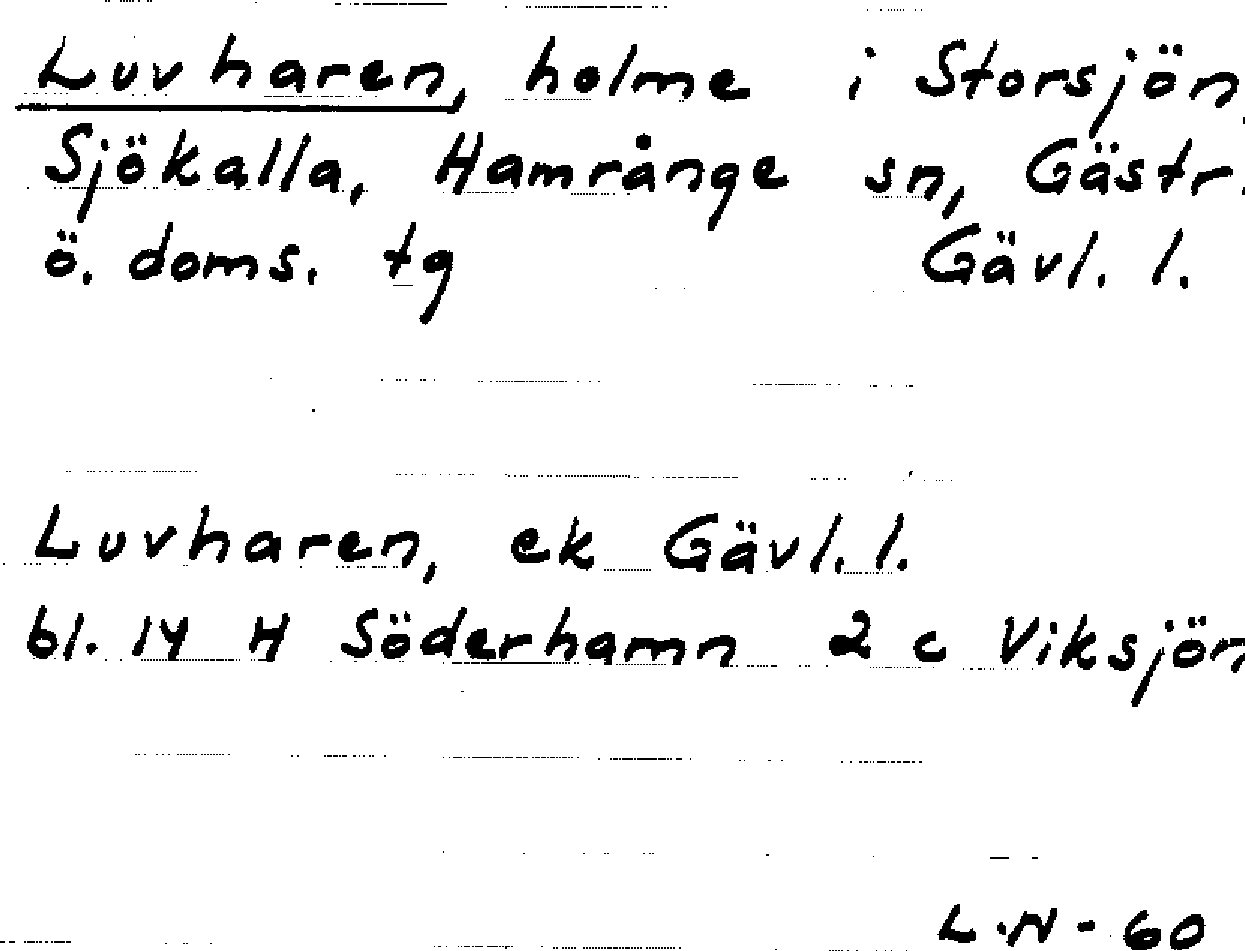 Luvharen, holme i Storsjön,
Sjökalla, Hamrånge sn, Gästr.
ö. doms. tg Gävl. l.
Luvharen, ek Gävl. l.
bl. 14 H Söderhamn 2 c Viksjön
L.N - 60